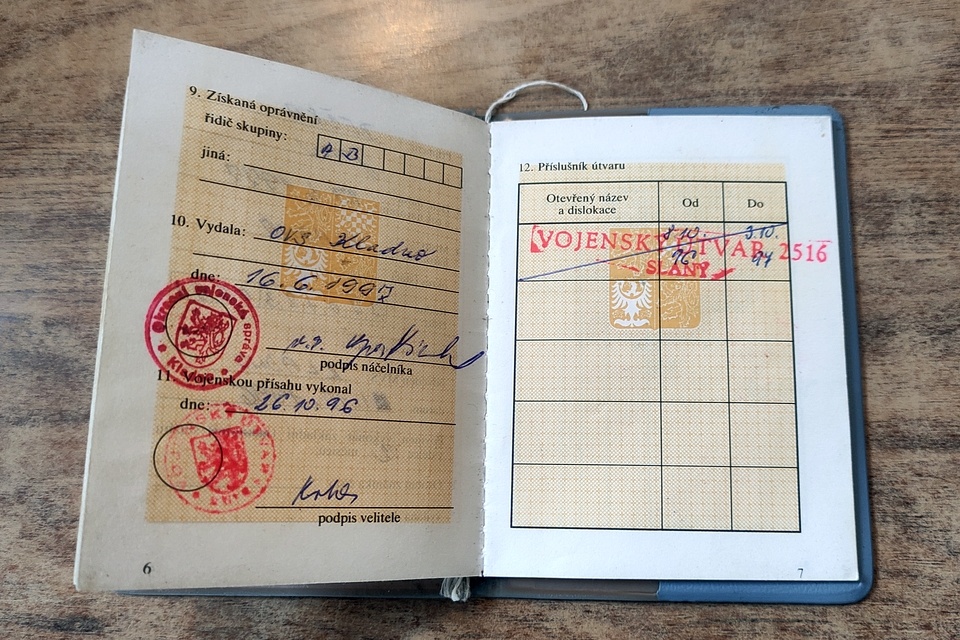 9. Získaná oprávnění
řidič skupiny: A B
jiná:
10. Vydala: OVS Kladno
dne: 16.6.1997
Okresní vojenská správa
Kladno
podpis náčelníka
11. Vojenskou přísahu vykonal
dne: 26.10.96
podpis velitele
6
12. Příslušník útvaru
Otevřený název a dislokace
Od
Do
VOJENSKÝ ÚTVAR 2516
SLANÝ
96
97
7